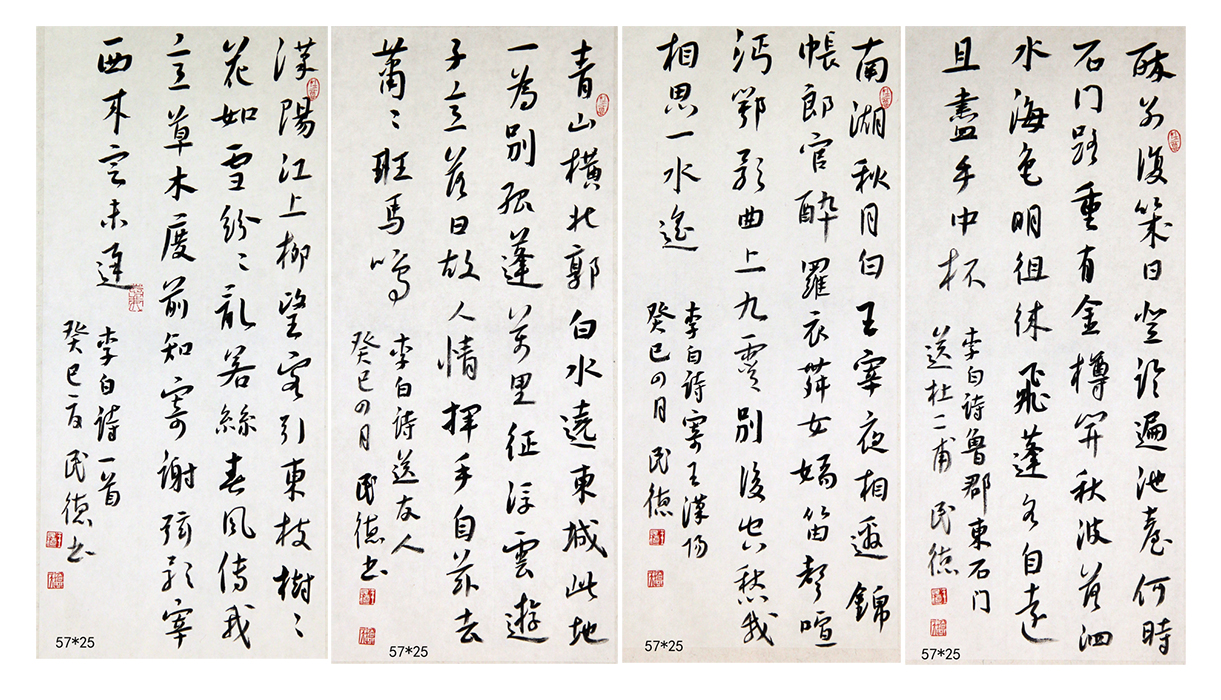 醉别復幾日登临遍池臺何時
石门路重有金樽開秋波落泗
水海色明徂徕飛蓬各自遠
且盡手中杯
李白诗魯郡東石门
送杜二甫 民德
57*25
南湖秋月白王宰夜相邀錦
帳郎官醉羅衣舞女嬌笛聲喧
沔鄂歌曲上九霄別後空愁我
相思一水遙
李白诗寄王漢阳
癸巳四月 民德
57*25
青山橫北郭白水遶東城此地
一為別孤蓬萬里征浮雲遊
子意落日故人情揮手自茲去
蕭々班馬鳴
李白诗送友人
癸巳四月 民德书
57*25
漢陽江上柳望客引東枝樹々
花如雪紛々亂若絲春風傳我
意草木度前知寄謝弦歌宰
西來定未遲
李白诗一首
癸巳夏 民德书
57*25